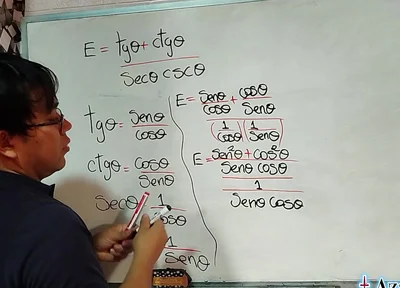 E = tgθ + ctgθ
Secθ cscθ
tgθ = Senθ
cosθ
ctgθ = cosθ
Senθ
Secθ 1
cosθ
1
Senθ
E = Senθ + cosθ
cosθ Senθ
(1) (1)
cosθ Senθ
E = Sen²θ + cos²θ
Senθ cosθ
1
Senθ cosθ